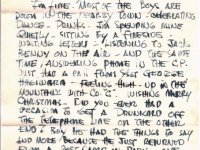 I'M FINE. MOST OF THE BOYS ARE
DOWN IN THE NEARBY TOWN CELEBRATING
DANCE - DRINKS. I'M SPENDING ALONE
QUIETLY - SITTING BY A FIRESIDE
WRITING LETTERS - LISTENING TO JACK
BENNY ON THE AIR - AND AT THE SAME
TIME, ANSWERING PHONE IN THE C.P.
JUST HAD A CALL FROM SSGT GEORGE
- FEELING HIGH UP IN THE
MOUNTAINS WITH CO "C" WISHING MERRY
CHRISTMAS. DID YOU EVER HAD A
OCCASION TO GET A DRUNKARD OFF
THE TELEPHONE HE'S ON THE OTHER
END? BOY HE HAD THE THINGS TO SAY
AND MORE BECAUSE HE JUST RETURNED
FROM A REST CAMP IN